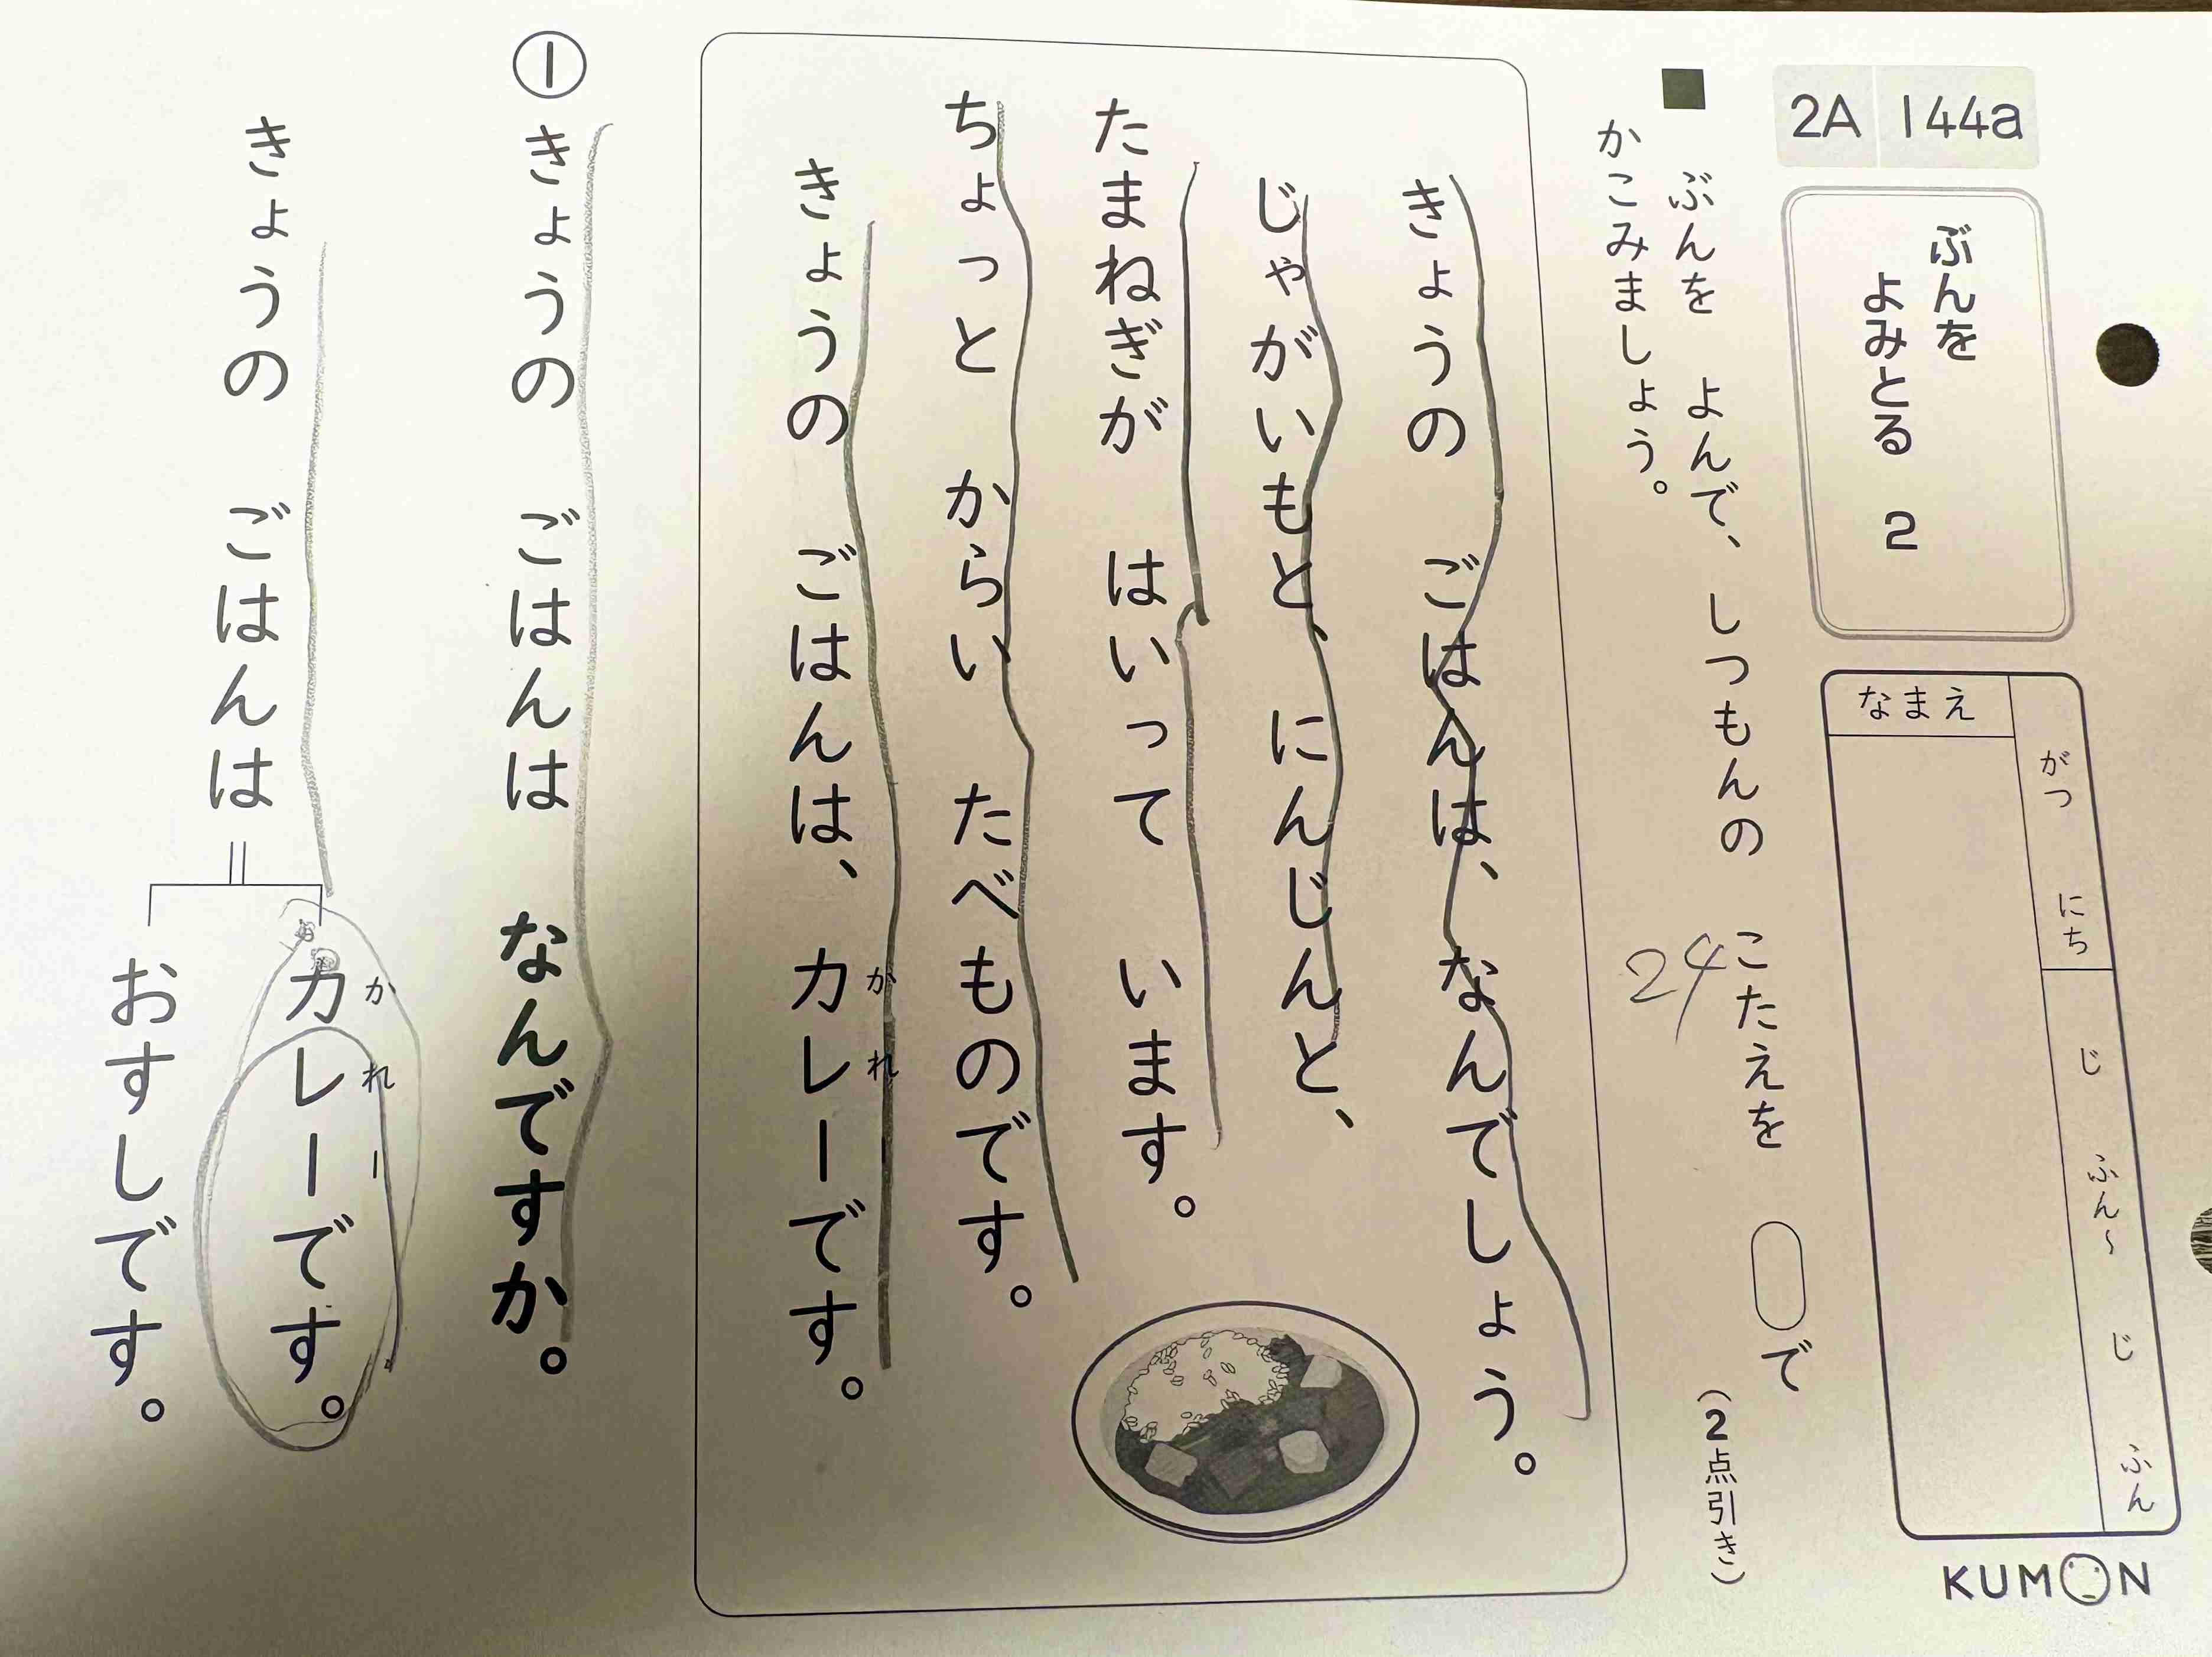 2A 144a
ぶんを
よみとる 2
なまえ
がつ にち
じ ふん～ じ ふん
KUMON
■ ぶんを よんで、しつもんの こたえを ◯で
かこみましょう。
(2点引き)
24
きょうの ごはんは、なんでしょう。
じゃがいもと、にんじんと、
たまねぎが はいって います。
ちょっと からい たべものです。
きょうの ごはんは、カレーです。
かれー
① きょうの ごはんは なんですか。
きょうの ごはんは
カレーです。
かれー
おすしです。